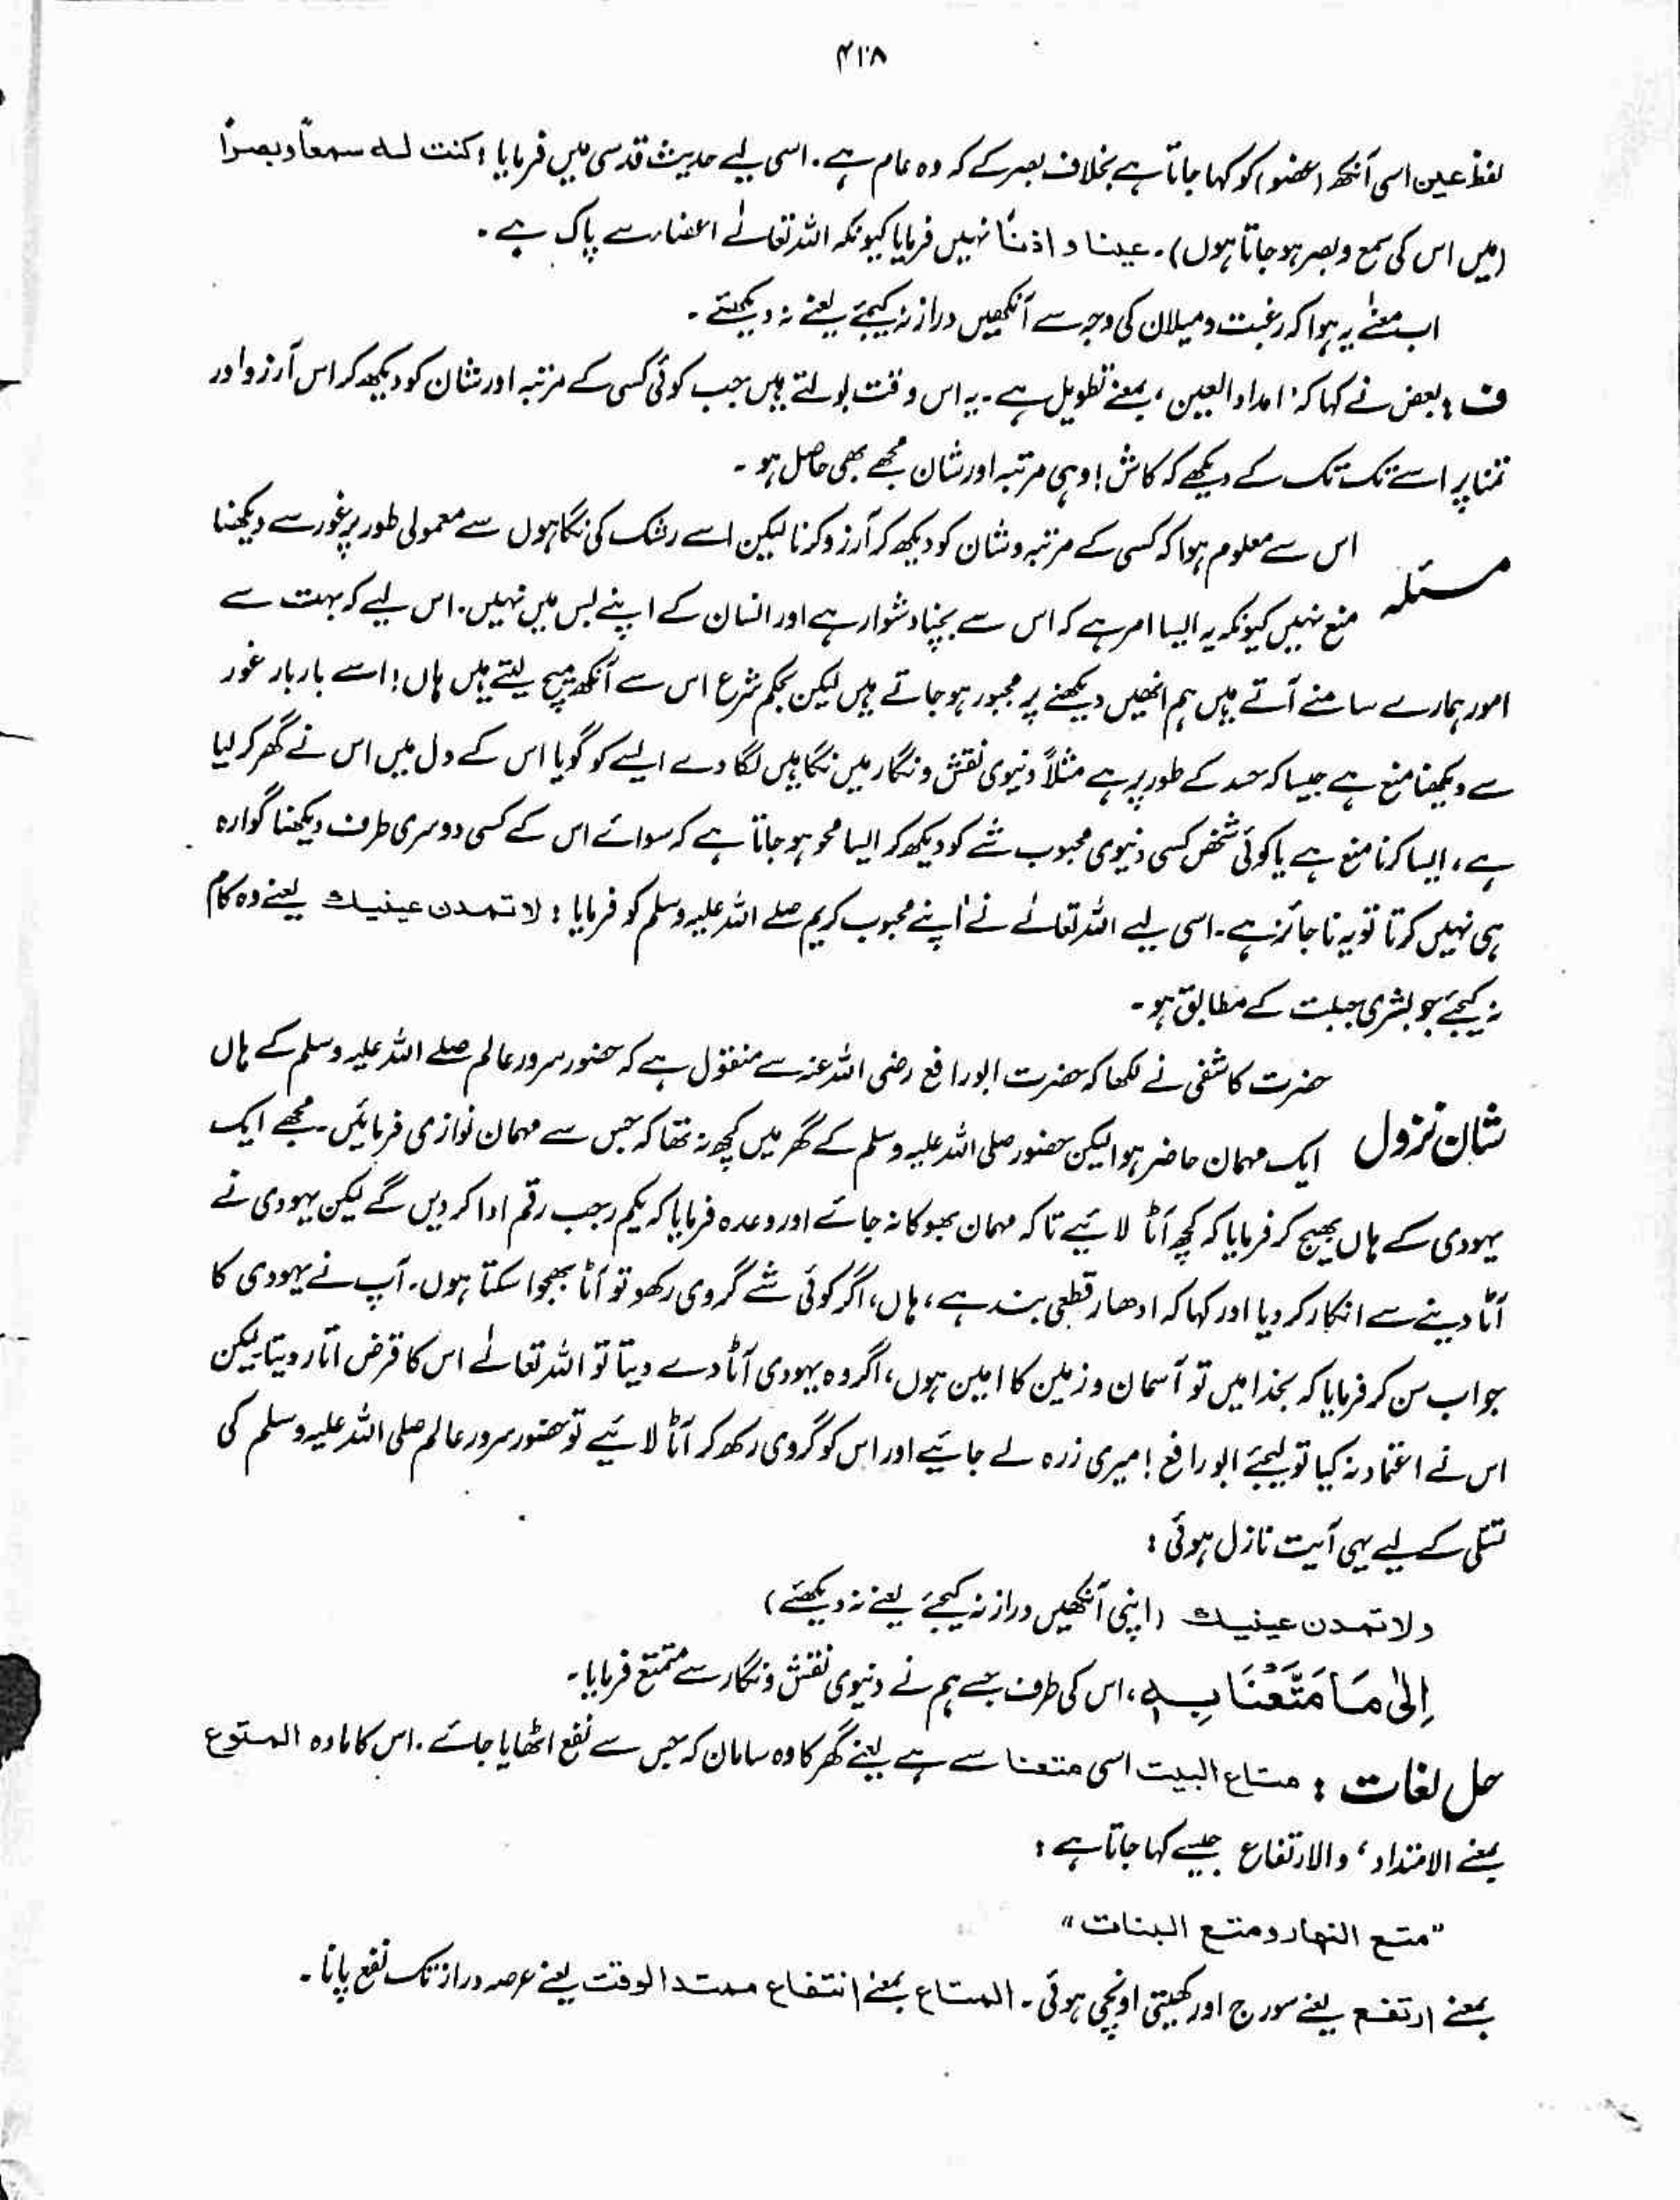 ۴۱۸
لفظ عین اسی آنکھ (عضو) کو کہا جاتا ہے بخلاف بصر کے کہ وہ عام ہے۔ اسی لیے حدیث قدسی میں فرمایا : کنت لہ سمعاً وبصراً
(میں اس کی سمع وبصر ہو جاتا ہوں)۔ عینا و اذناً نہیں فرمایا کیونکہ اللہ تعالیٰ اعضاء سے پاک ہے۔
اب معنیٰ یہ ہوا کہ رغبت ومیلان کی وجہ سے آنکھیں دراز نہ کیجئے یعنے نہ دیکھئے۔
ف : بعض نے کہا کہ امداد العین، بمعنے تطویل ہے۔ یہ اس وقت بولتے ہیں جب کوئی کسی کے مرتبہ اور شان کو دیکھ کر اس آرزو اور
تمنا پر اسے تک تک کے دیکھے کہ کاش! وہی مرتبہ اور شان مجھے بھی حاصل ہو۔
مسئلہ اس سے معلوم ہوا کہ کسی کے مرتبہ وشان کو دیکھ کر آرزو کرنا لیکن اسے رشک کی نگاہوں سے معمولی طور پر غور سے دیکھنا
منع نہیں کیونکہ یہ ایسا امر ہے کہ اس سے بچنا دشوار ہے اور انسان کے اپنے بس میں نہیں۔ اس لیے کہ بہت سے
امور ہمارے سامنے آتے ہیں ہم انھیں دیکھنے پر مجبور ہو جاتے ہیں لیکن بحکم شرع اس سے آنکھ میچ لیتے ہیں ہاں! اسے بار بار غور
سے دیکھنا منع ہے جیسا کہ حسد کے طور پر ہے مثلاً دنیوی نقش ونگار میں نگاہیں لگا دے ایسے کو گویا اس کے دل میں اس نے گھر کر لیا
ہے، ایسا کرنا منع ہے یا کوئی شخص کسی دنیوی محبوب شے کو دیکھ کر ایسا محو ہو جاتا ہے کہ سوائے اس کے کسی دوسری طرف دیکھنا گوارہ
ہی نہیں کرتا تو یہ ناجائز ہے۔ اسی لیے اللہ تعالےٰ نے اپنے محبوب کریم صلے اللہ علیہ وسلم کو فرمایا : لا تمدن عینیك یعنے وہ کام
نہ کیجئے جو بشری جبلت کے مطابق ہو۔
شان نزول حضرت کاشفی نے لکھا کہ حضرت ابورافع رضی اللہ عنہ سے منقول ہے کہ حضور سرور عالم صلے اللہ علیہ وسلم کے ہاں
ایک مہمان حاضر ہوا لیکن حضور صلی اللہ علیہ وسلم کے گھر میں کچھ نہ تھا کہ جس سے مہمان نوازی فرمائیں۔ مجھے ایک
یہودی کے ہاں بھیج کر فرمایا کہ کچھ آٹا لائیے تاکہ مہمان بھوکا نہ جائے اور وعدہ فرمایا کہ یکم رجب رقم ادا کر دیں گے لیکن یہودی نے
آٹا دینے سے انکار کر دیا اور کہا کہ ادھار قطعی بند ہے، ہاں، اگر کوئی شے گروی رکھو تو آٹا بھجوا سکتا ہوں۔ آپ نے یہودی کا
جواب سن کر فرمایا کہ بخدا میں تو آسمان وزمین کا امین ہوں، اگر وہ یہودی آٹا دے دیتا تو اللہ تعالےٰ اس کا قرض اتار دیتا لیکن
اس نے اعتماد نہ کیا تو لیجئے ابورافع! میری زرہ لے جائیے اور اس کو گروی رکھ کر آٹا لائیے تو حضور سرور عالم صلی اللہ علیہ وسلم کی
تسلی کے لیے یہی آیت نازل ہوئی :
ولا تمدن عینیك (اپنی آنکھیں دراز نہ کیجئے یعنے نہ دیکھئے)
اِلیٰ مَا مَتَّعْنَا بِہٖ، اس کی طرف جسے ہم نے دنیوی نقش ونگار سے متمتع فرمایا۔
حل لغات : متاع البیت اسی متعنا سے ہے یعنے گھر کا وہ سامان کہ جس سے نفع اٹھایا جائے۔ اس کا مادہ المتوع
بمعنے الامتداد، والارتفاع جیسے کہا جاتا ہے :
"متع النهار ومتع البنات"
بمعنے ارتفع یعنے سورج اور کھیتی اونچی ہوئی۔ المتاع بمعنے انتفاع ممتد الوقت یعنے عرصہ دراز تک نفع پانا۔